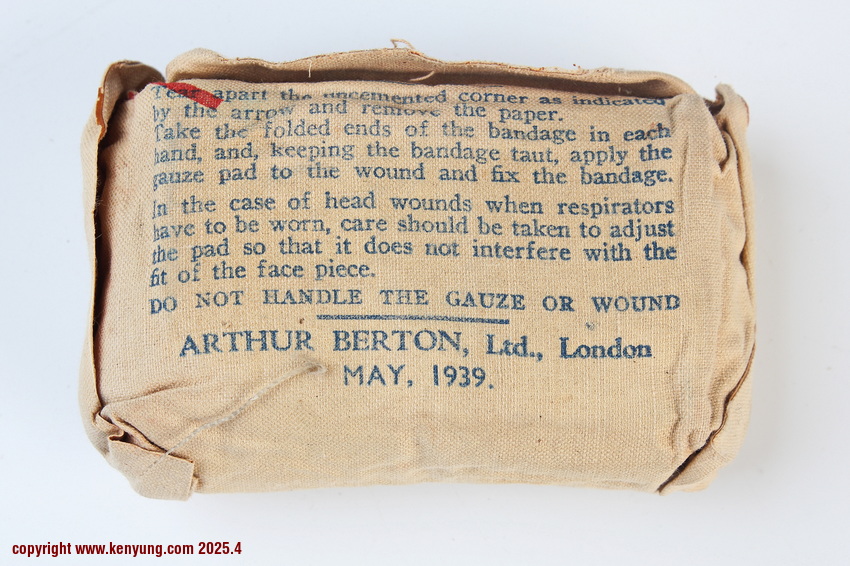 Tear apart the uncemented corner as indicated
by the arrow and remove the paper.
Take the folded ends of the bandage in each
hand, and, keeping the bandage taut, apply the
gauze pad to the wound and fix the bandage.
In the case of head wounds when respirators
have to be worn, care should be taken to adjust
the pad so that it does not interfere with the
fit of the face piece.
DO NOT HANDLE THE GAUZE OR WOUND
ARTHUR BERTON, Ltd., London
MAY, 1939.
copyright www.kenyung.com 2025.4